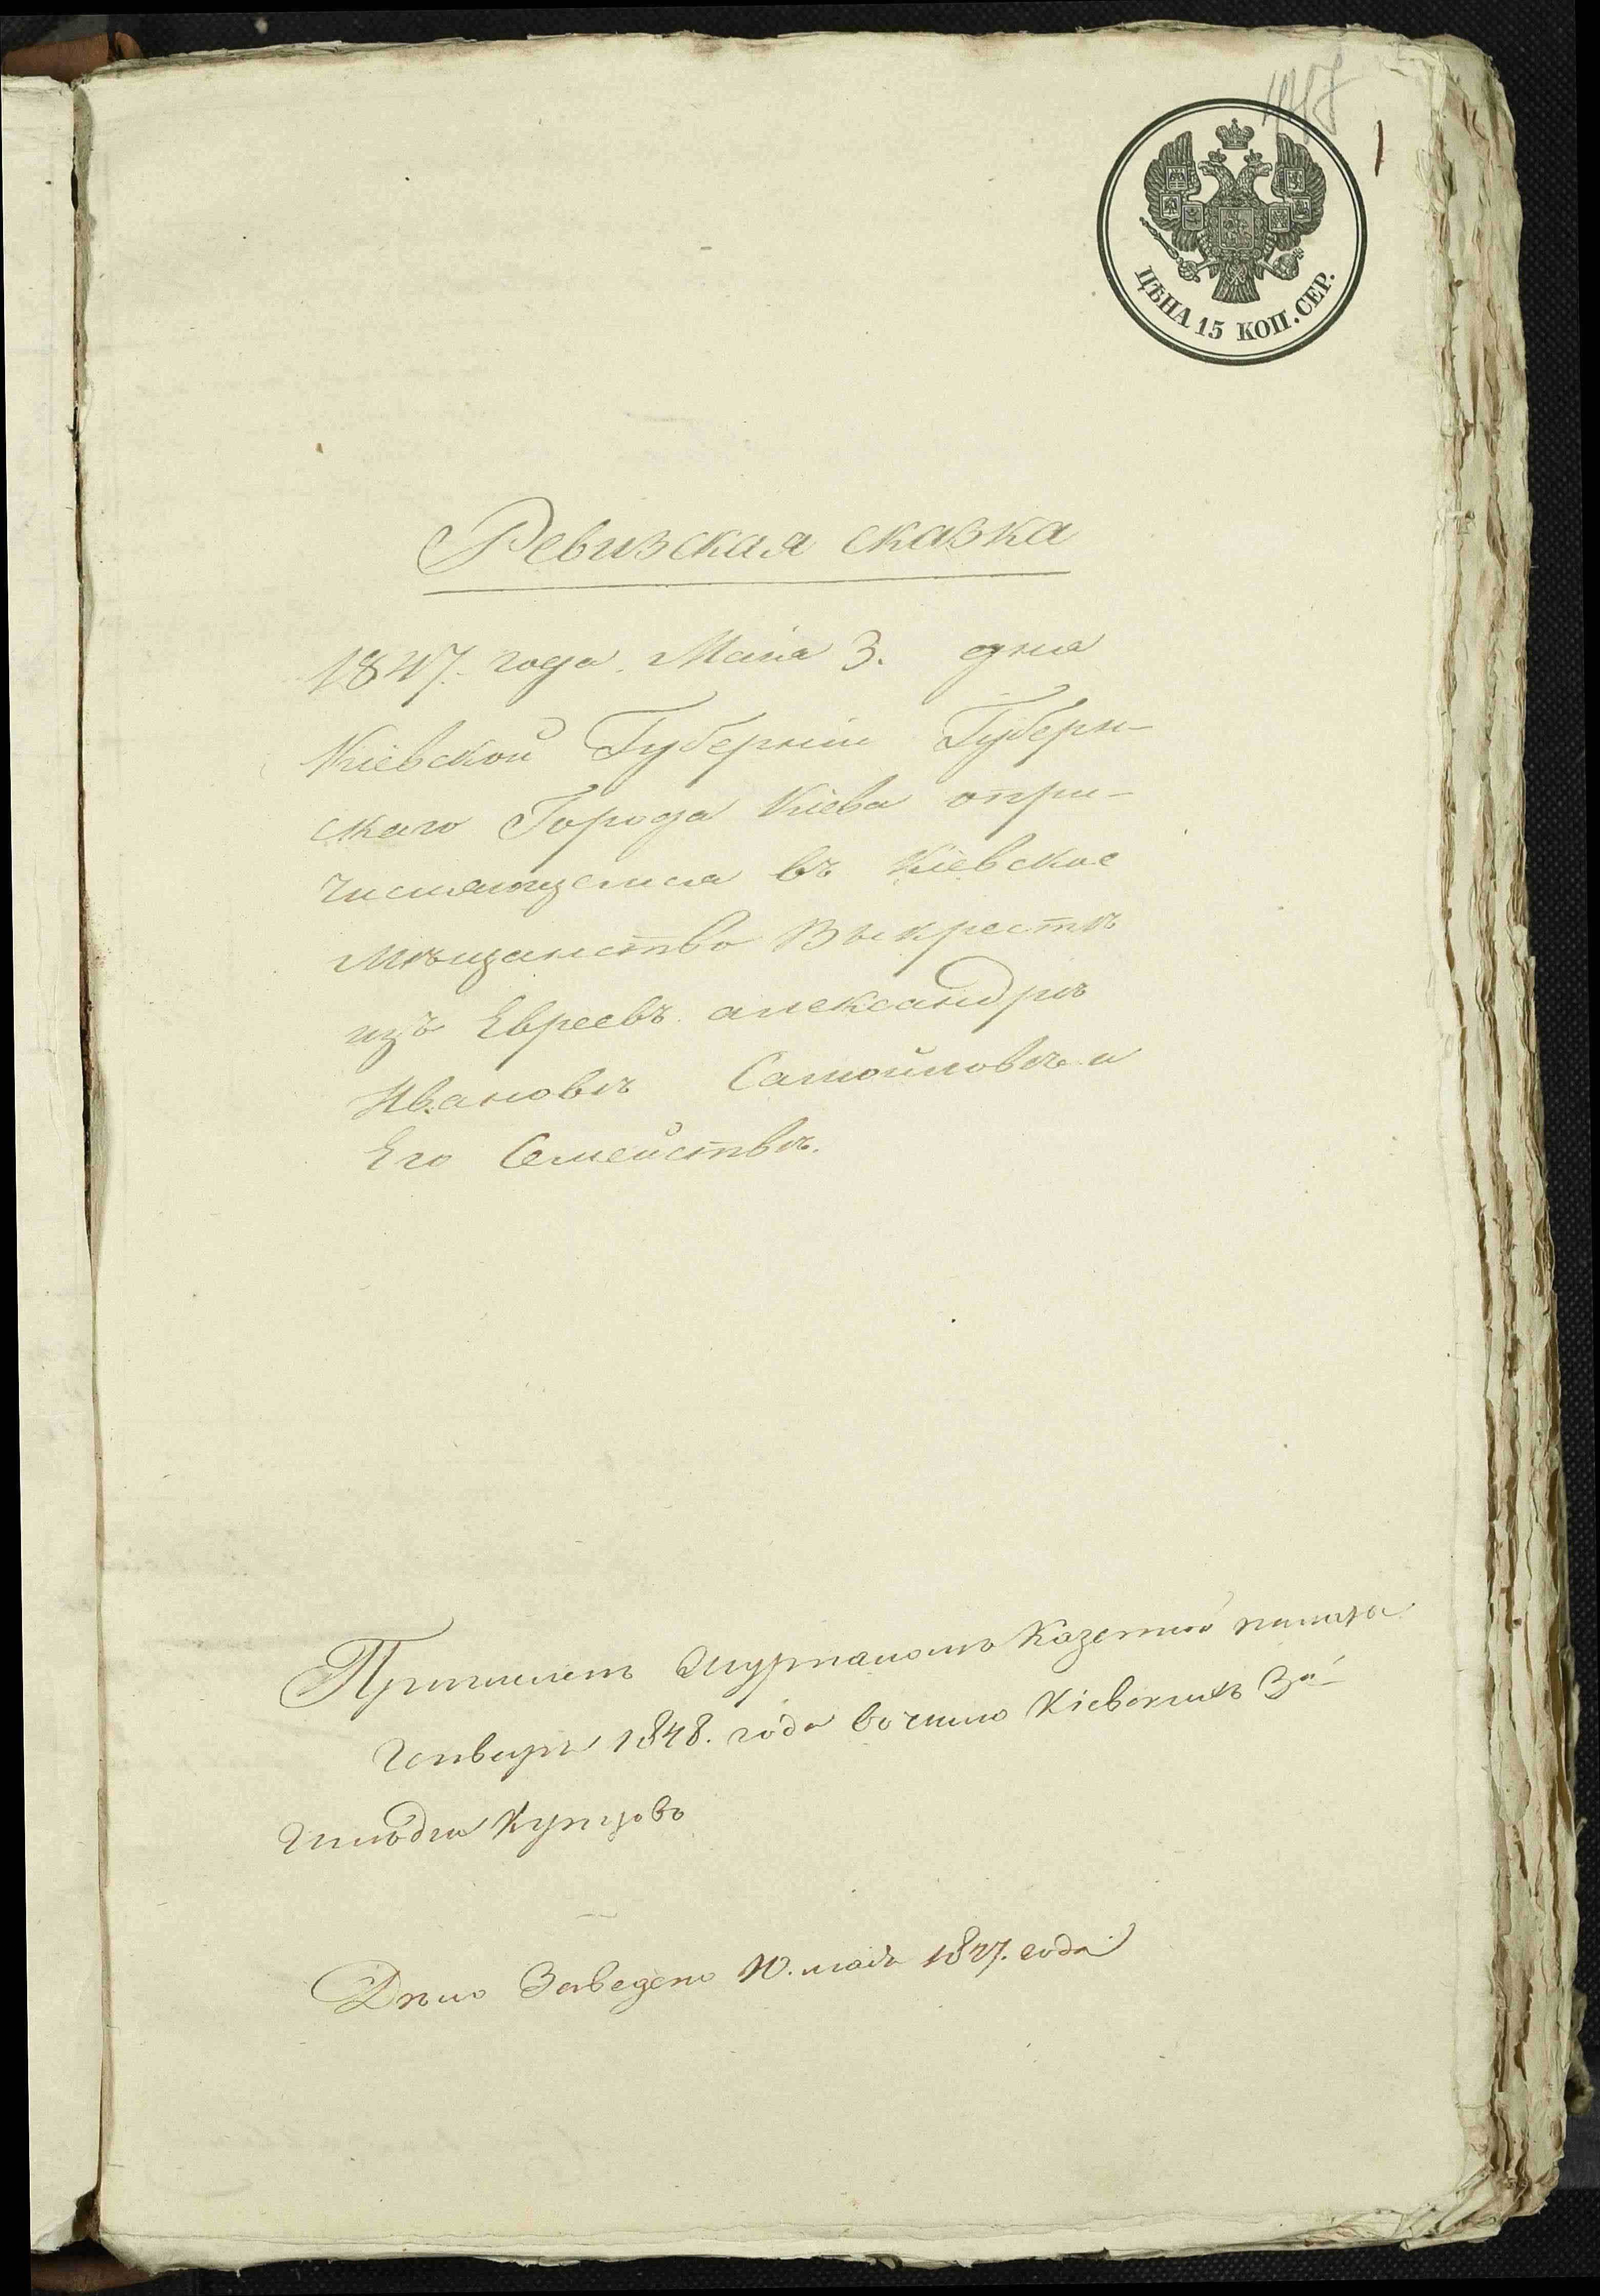 1
ЦѢНА 15 КОП. СЕР.
Ревизская сказка
1847. года Маія 3. дня
Кіевской Губерніи Губерн-
скаго Города Кіева опри-
числяющемся въ Кіевское
мѣщанство Выкрестѣ
изъ Евреевъ александрѣ
Ивановѣ Самойловѣ и
Его Семействѣ.
Причислен Журналомъ Казенной палаты
Генваря 1848. года вочисло Кіевскихъ 3й-
Гильдіи Купцовъ
Дѣло Заведено 10. маія 1847. года